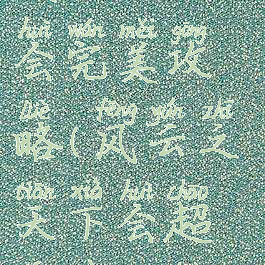 huì wán měi gōng
会完美攻
lüè fēng yún zhī
略(风云之
tiān xià huì chāo
天下会超